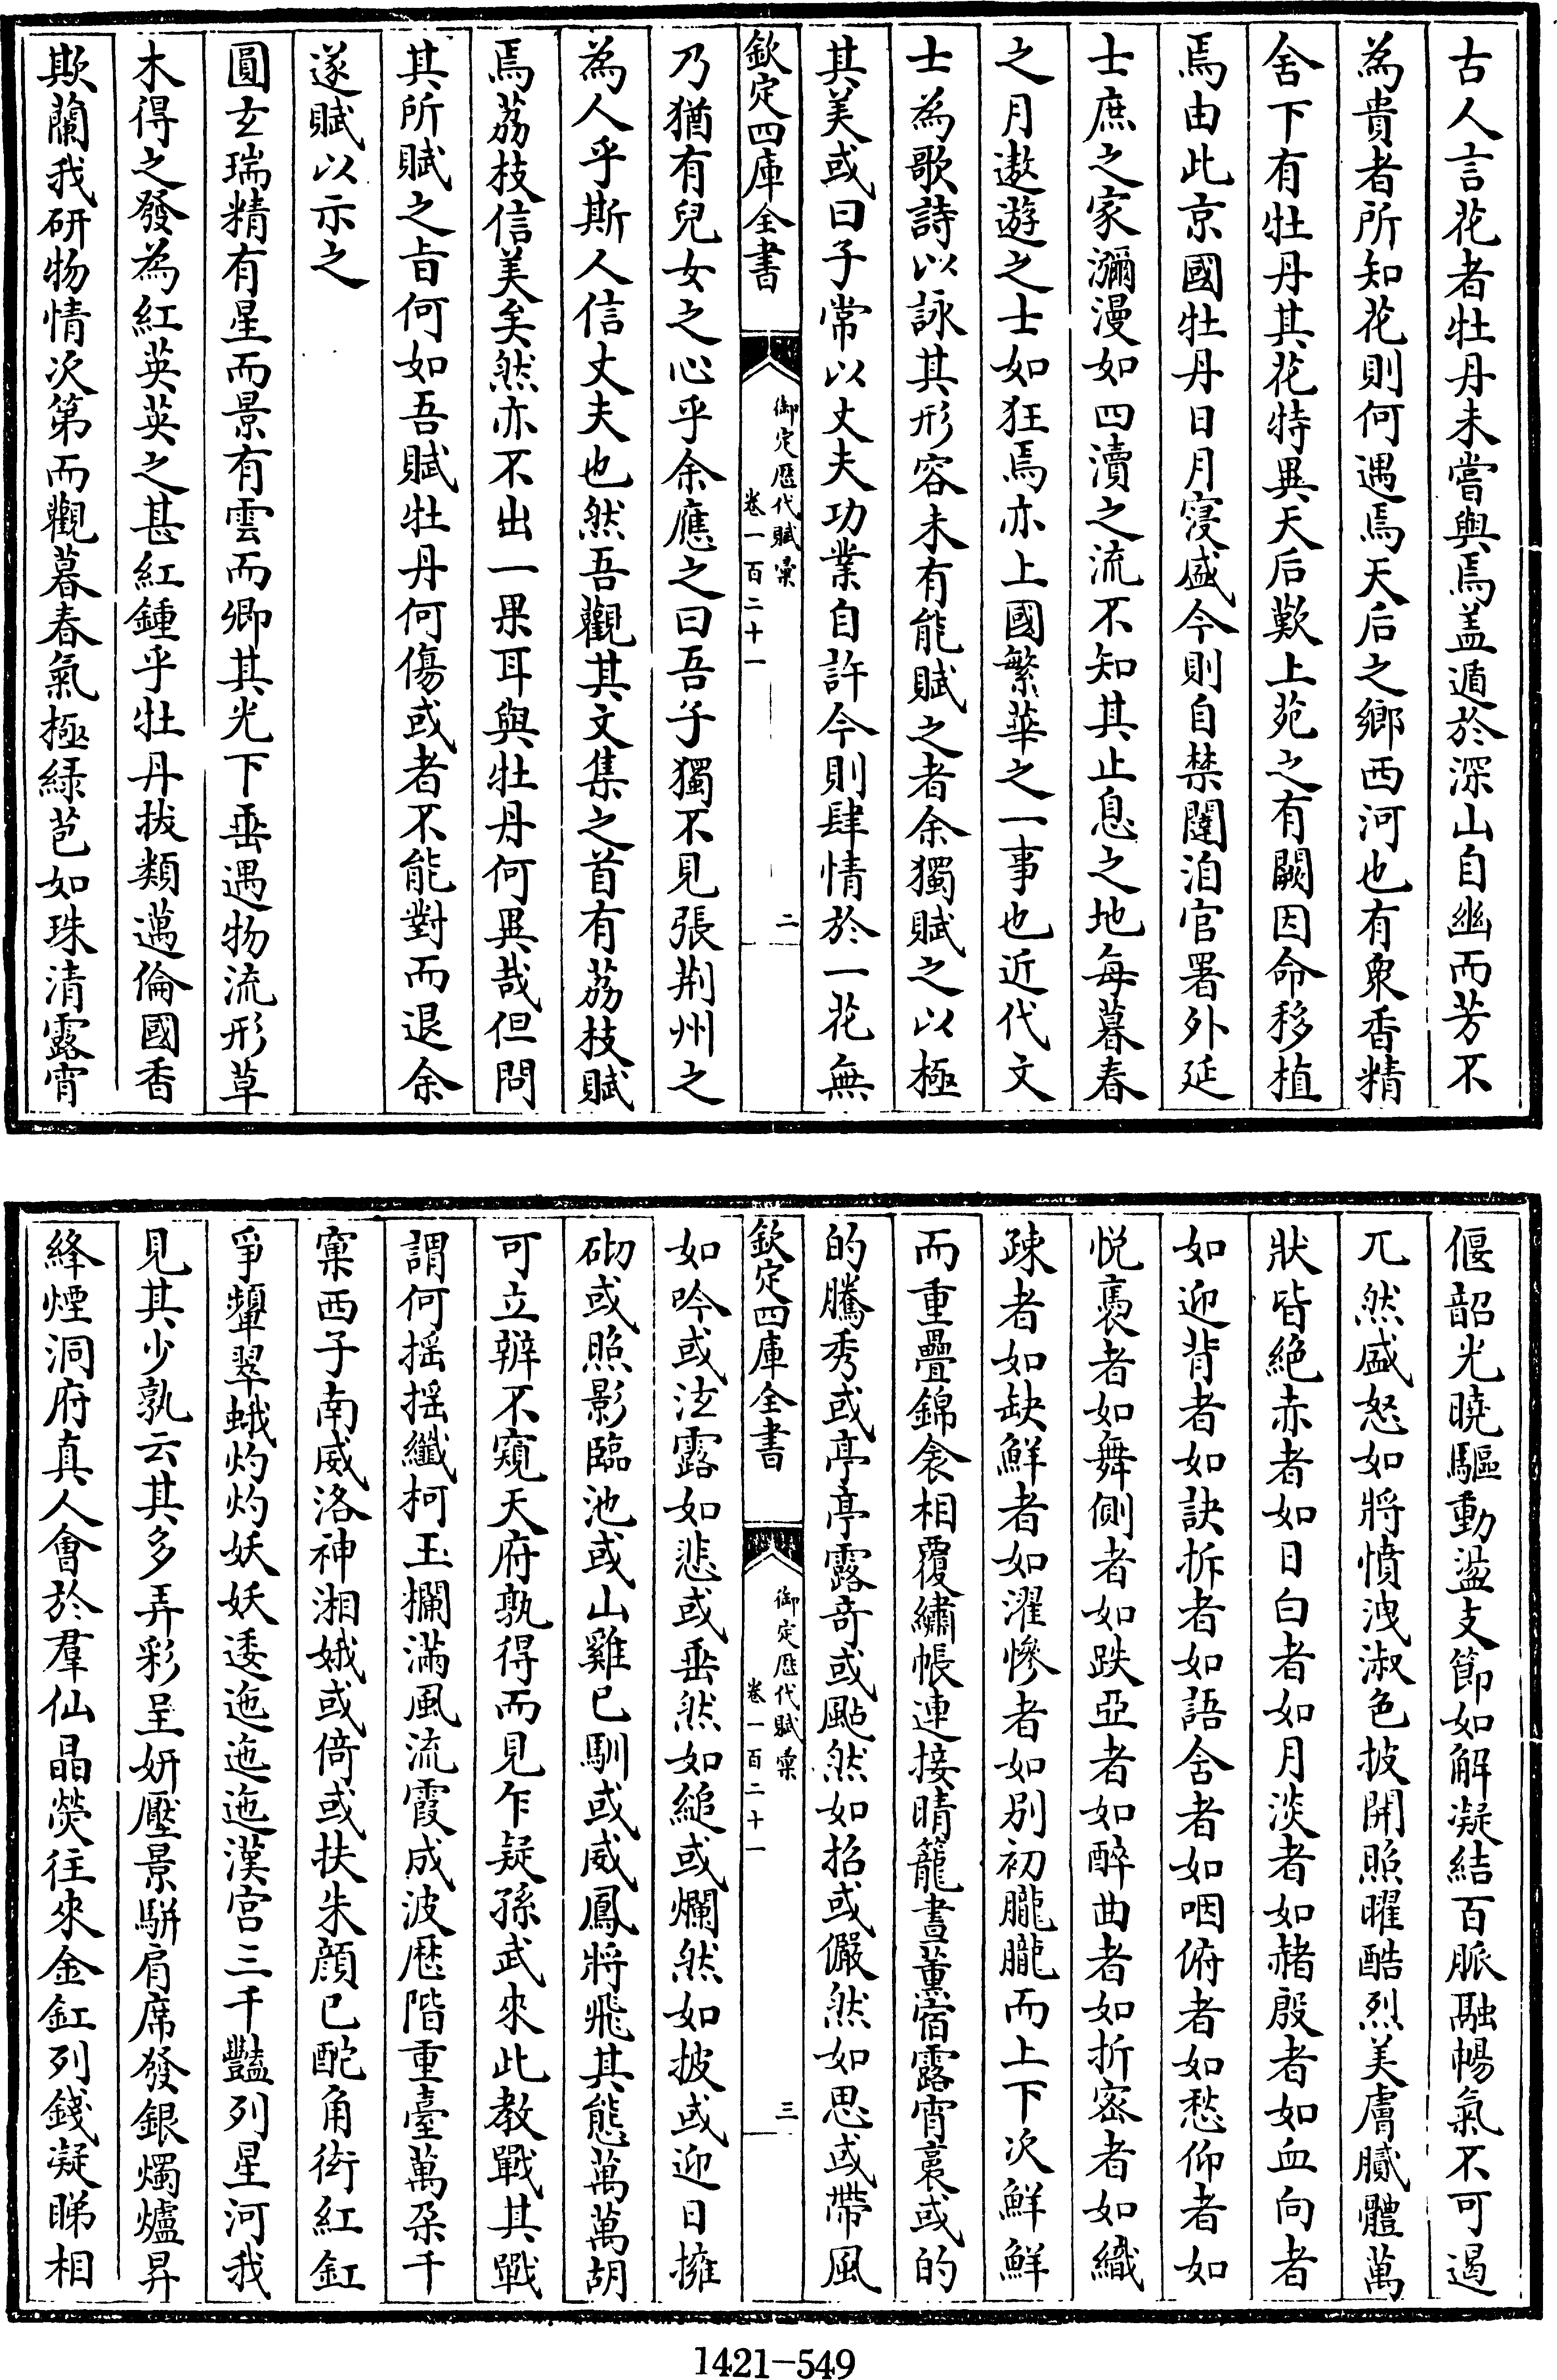 古人言花者牡丹未嘗與焉盖遁於深山自幽而芳不
為貴者所知花則何遇焉天后之鄉西河也有衆香精
舍下有牡丹其花特異天后歎上苑之有闕因命移植
焉由此京國牡丹日月寖盛今則自禁闥洎官署外延
士庶之家瀰漫如四瀆之流不知其止息之地每暮春
之月遨遊之士如狂焉亦上國繁華之一事也近代文
士為歌詩以詠其形容未有能賦之者余獨賦之以極
其美或曰子常以丈夫功業自許今則肆情於一花無
欽定四庫全書
御定歷代賦彙
卷一百二十一
二
乃猶有兒女之心乎余應之曰吾子獨不見張荆州之
為人乎斯人信丈夫也然吾觀其文集之首有荔枝賦
焉荔枝信美矣然亦不出一果耳與牡丹何異哉但問
其所賦之旨何如吾賦牡丹何傷或者不能對而退余
遂賦以示之
圓玄瑞精有星而景有雲而卿其光下垂遇物流形草
木得之發為紅英英之甚紅鍾乎牡丹拔類邁倫國香
欺蘭我研物情次第而觀暮春氣極緑苞如珠清露宵
偃韶光曉驅動盪支節如解凝結百脈融暢氣不可遏
兀然盛怒如將憤洩淑色披開照曜酷烈美膚膩體萬
狀皆絶赤者如日白者如月淡者如赭殷者如血向者
如迎背者如訣拆者如語含者如咽俯者如愁仰者如
悦裛者如舞側者如跌亞者如醉曲者如折密者如織
疎者如缺鮮者如濯慘者如别初朧朧而上下次鮮鮮
而重疊錦衾相覆繡帳連接晴籠晝薰宿露宵裛或的
的騰秀或亭亭露奇或颭然如招或儼然如思或帶風
欽定四庫全書
御定歷代賦彙
卷一百二十一
三
如吟或泫露如悲或垂然如縋或爛然如披或迎日擁
砌或照影臨池或山雞已馴或威鳳將飛其態萬萬胡
可立辨不窺天府孰得而見乍疑孫武來此教戰其戰
謂何摇摇纎柯玉欄滿風流霞成波歷階重臺萬朶千
窠西子南威洛神湘娥或倚或扶朱顔已酡角衒紅釭
爭顰翠蛾灼灼妖妖逶迤迤迤漢宫三千豔列星河我
見其少孰云其多弄彩呈妍壓景駢肩席發銀燭爐昇
絳煙洞府真人會於羣仙晶熒往來金釭列錢凝睇相
1421-549